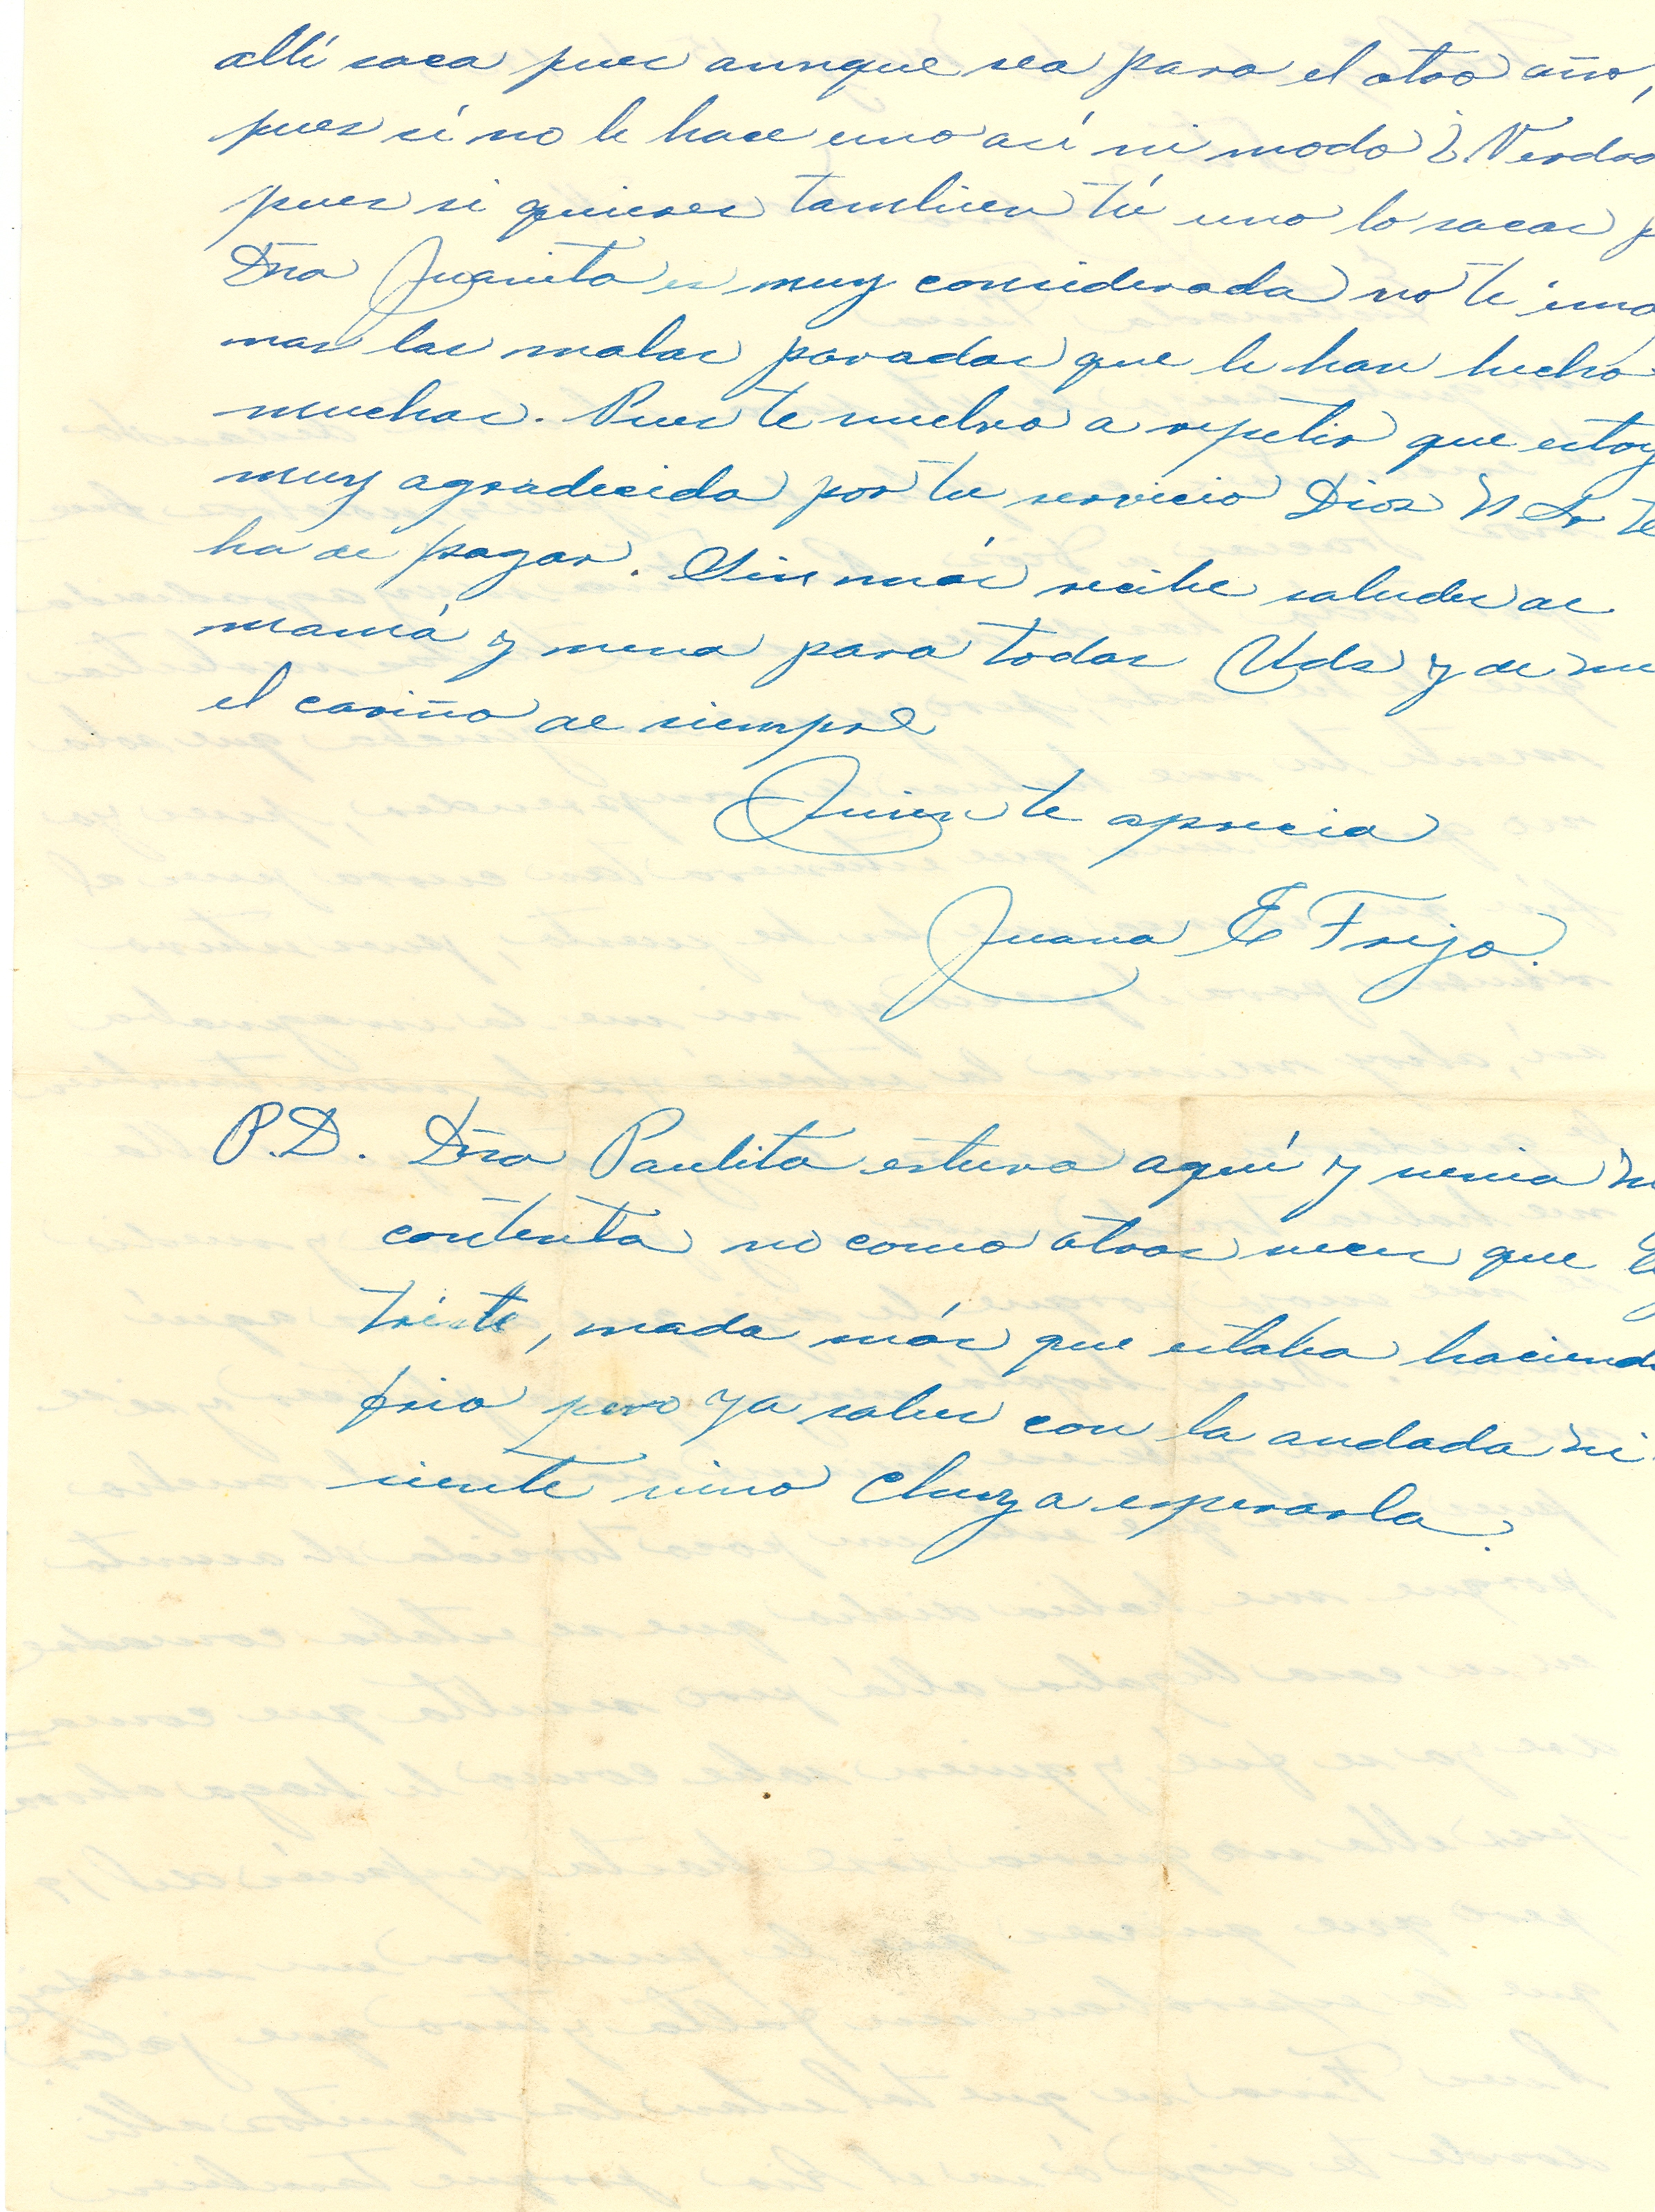 allí saca pues aunque sea para el otro año,
pues sí no le hace uno así ni modo ¿Verdad
pues si quieres tambien tú uno lo sacas
Dña Juanita es muy considerada no te
mas las malas pasadas que le han hecho
muchas. Pues te vuelvo a repetir que estoy
muy agradecida por tu servicio Dios N Sr te
ha de pagar. Sin más recibe saludes de
mamá y nena para todas Uds y de mi
el cariño de siempre
Quien te aprecia
Juana E Trejo.
P.D. Dña Paulita estuvo aquí y venia
contenta no como otras veces que
triste, nada más que estaba haciend
frio pero ya sabes con la andada ni
siente vino Chuy a esperarla.